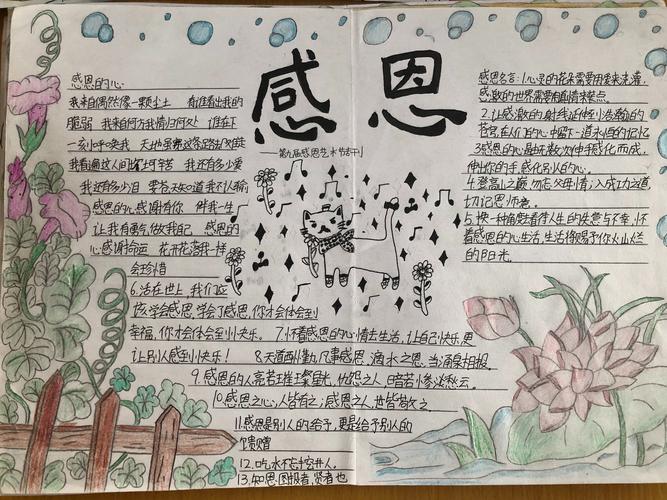 感恩
——第九届感恩艺术节特刊
感恩的心:
我来自偶然像一颗尘土 有谁看出我的
脆弱 我来自何方我情归何处 谁在下
一刻呼唤我 天地虽宽这条路却难走
我看遍这人间坎坷辛苦 我还有多少爱
我还有多少泪 要苍天知道我不认输
感恩的心感谢有你 伴我一生
让我有勇气做我自己 感恩的
心感谢命运 花开花落我一样
会珍惜
感恩名言:1.心灵的花朵需要用爱来浇灌,
感激的世界需要用真情来装点。
2.让感激的
3.感恩的心是由无数次伸手感化而成,
伸出你的手,感化别人的心。
4.登高山之巅,勿忘父母情;入成功之道,
切记恩师意。
5.换一种角度看待人生的失意与不幸,怀
着感恩的心生活,生活将赐予你火山烂
的阳光。
6.活在世上,我们应
该学会感恩,学会了感恩,你才会体会到
幸福,你才会体会到快乐。 7.怀着感恩的心情去生活,让自己快乐,更
让别人感到快乐! 8.天道酬勤,凡事感恩,滴水之恩,当涌泉相报。
9.感恩的人亮若璀璨星光,仇怨之人,暗若惨淡秋云。
10.感恩之心,人皆有之;感恩之人,世皆敬之
11.感恩是别人的给予,更是给予别人的
馈赠
12.吃水不忘挖井人。
13.知恩图报者,贤者也